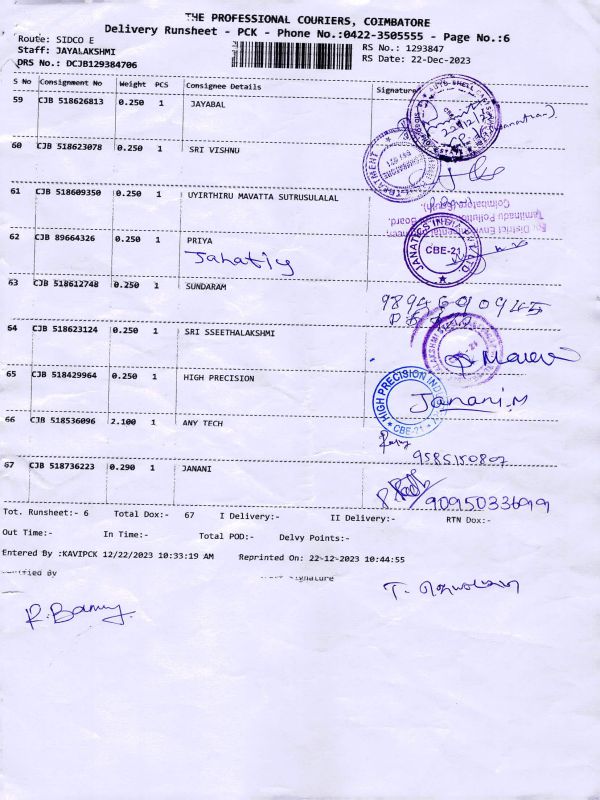 THE PROFESSIONAL COURIERS, COIMBATORE
Delivery Runsheet - PCK - Phone No.:0422-3505555 - Page No.:6
Route: SIDCO E
RS No.: 1293847
Staff: JAYALAKSHMI
RS Date: 22-Dec-2023
DRS No.: DCJB129384706
S No Consignment No Weight PCS Consignee Details Signature
59 CJB 518626813 0.250 1 JAYABAL
60 CJB 518623078 0.250 1 SRI VISHNU
61 CJB 518609350 0.250 1 UYIRTHIRU MAVATTA SUTRUSULALAL
Tamilnadu Pollution Board.
Coimbatore (South),
62 CJB 89664326 0.250 1 PRIYA
JANATICS INDIA PVT LTD
CBE-21
63 CJB 518612748 0.250 1 SUNDARAM
64 CJB 518623124 0.250 1 SRI SSEETHALAKSHMI
65 CJB 518429964 0.250 1 HIGH PRECISION
HIGH PRECISION
CBE-21
Janani.M
66 CJB 518536096 2.100 1 ANY TECH
9585150807
67 CJB 518736223 0.290 1 JANANI
Tot. Runsheet:- 6 Total Dox:- 67 I Delivery:- II Delivery:- RTN Dox:-
Out Time:- In Time:- Total POD:- Delvy Points:-
Entered By :KAVIPCK 12/22/2023 10:33:19 AM Reprinted On: 22-12-2023 10:44:55
Verified By Signature